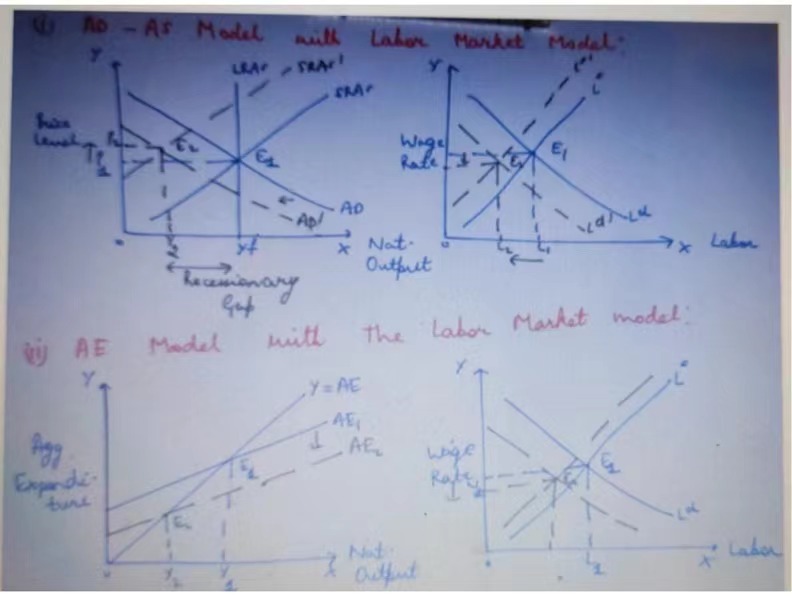 (i) AD - AS Model with Labor Market Model:
Y
LRAS
SRAS'
SRAS
Price
Level
P2
P1
E2
E1
AD
AD'
0
Y2
Yf
X
Nat.
Output
Recessionary
Gap
Y
Wage
Rate
E1
E2
Ld'
Ld
0
L2
L1
X
Labor
(ii) AE Model with the Labor Market model:
Y
Y = AE
AE1
AE2
Agg
Expendi-
ture
E1
E2
0
Y2
Y1
X
Nat.
Output
Y
Wage
Rate
E1
E2
Ld
L1
X
Labor